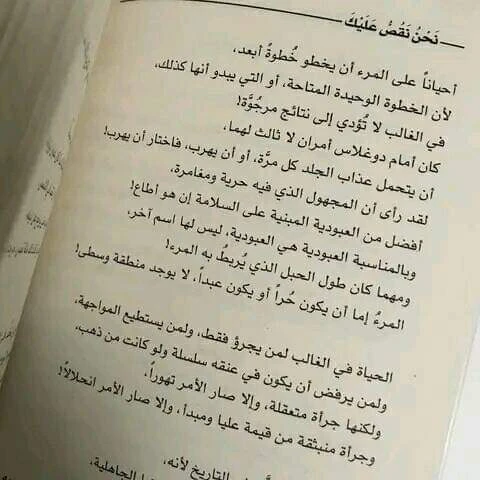 نَحْنُ نَقُصُّ عَلَيْكَ
أحياناً على المرء أن يخطو خُطوةً أبعد،
لأن الخطوة الوحيدة المتاحة، أو التي يبدو أنها كذلك،
في الغالب لا تُؤدي إلى نتائج مرجُوَّة!
كان أمام دوغلاس أمران لا ثالث لهما،
أن يتحمل عذاب الجلد كل مرَّة، أو أن يهرب، فاختار أن يهرب!
لقد رأى أن المجهول الذي فيه حرية ومغامرة،
أفضل من العبودية المبنية على السلامة إن هو أطاع!
وبالمناسبة العبودية هي العبودية، ليس لها اسم آخر،
ومهما كان طول الحبل الذي يُربطُ به المرء!
المرءُ إما أن يكون حُراً أو يكون عبداً، لا يوجد منطقة وسطى!
الحياة في الغالب لمن يجرؤ فقط، ولمن يستطيع المواجهة،
ولمن يرفض أن يكون في عنقه سلسلة ولو كانت من ذهب،
ولكنها جرأة متعقلة، وإلا صار الأمر تهوراً،
وجرأة منبثقة من قيمة عليا ومبدأ، وإلا صار الأمر انحلالاً!
التاريخ لأنه،
الجاهلية،